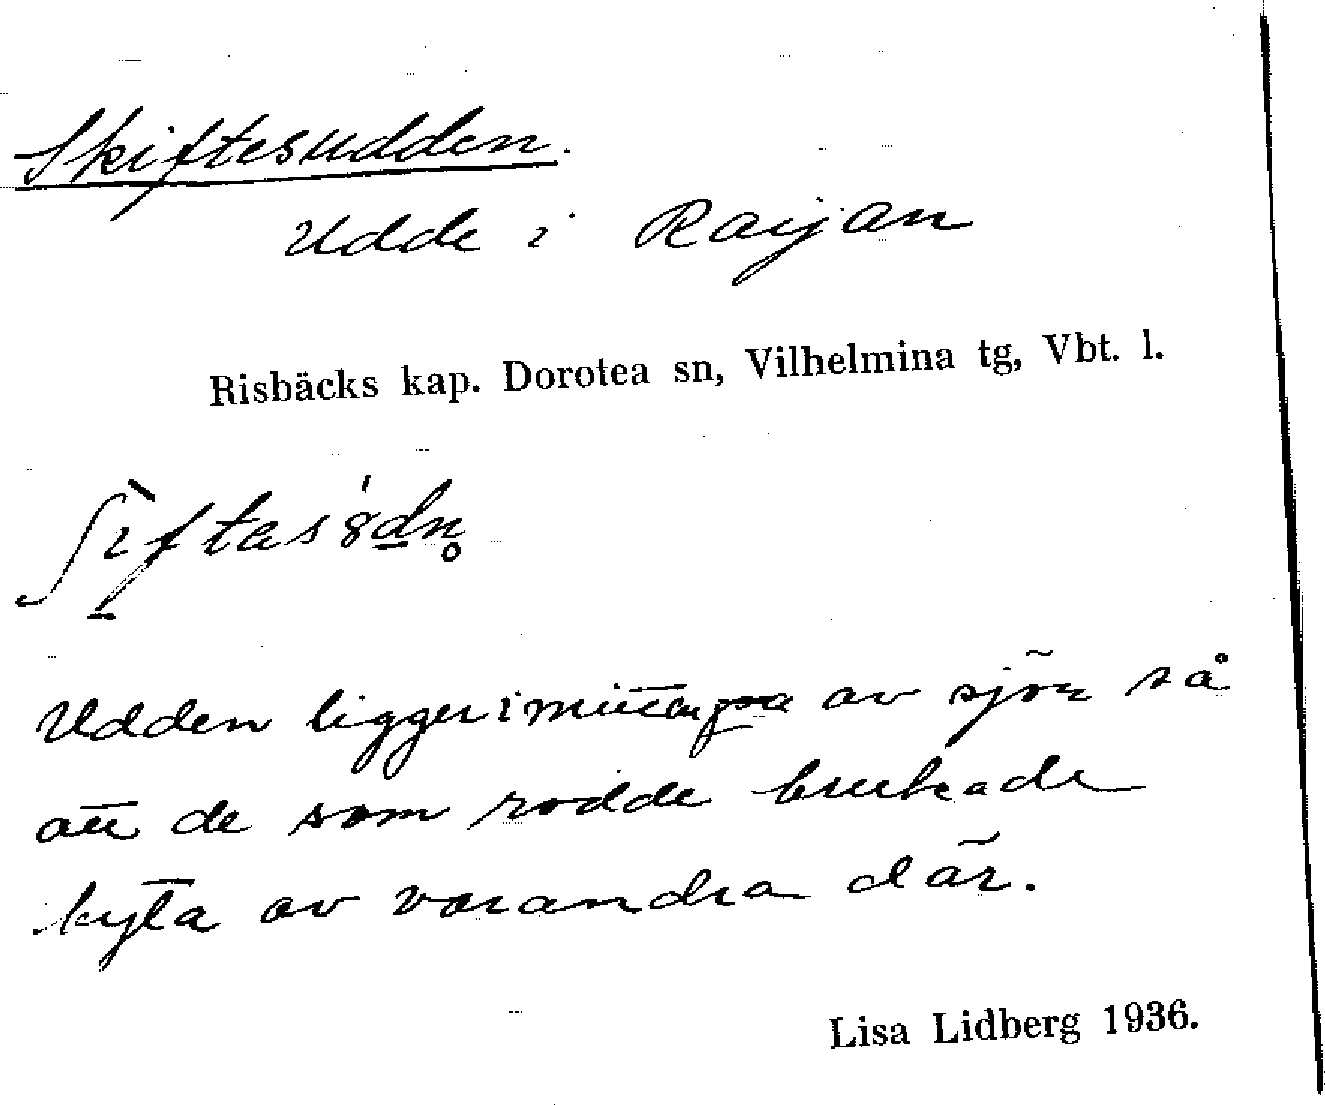 Skiftesudden.
Udde i Raijan
Risbäcks kap. Dorotea sn, Vilhelmina tg, Vbt. l.
Udden ligger i mitten på av sjön så
att de som rodde brukade
byta av varandra där.
Lisa Lidberg 1936.